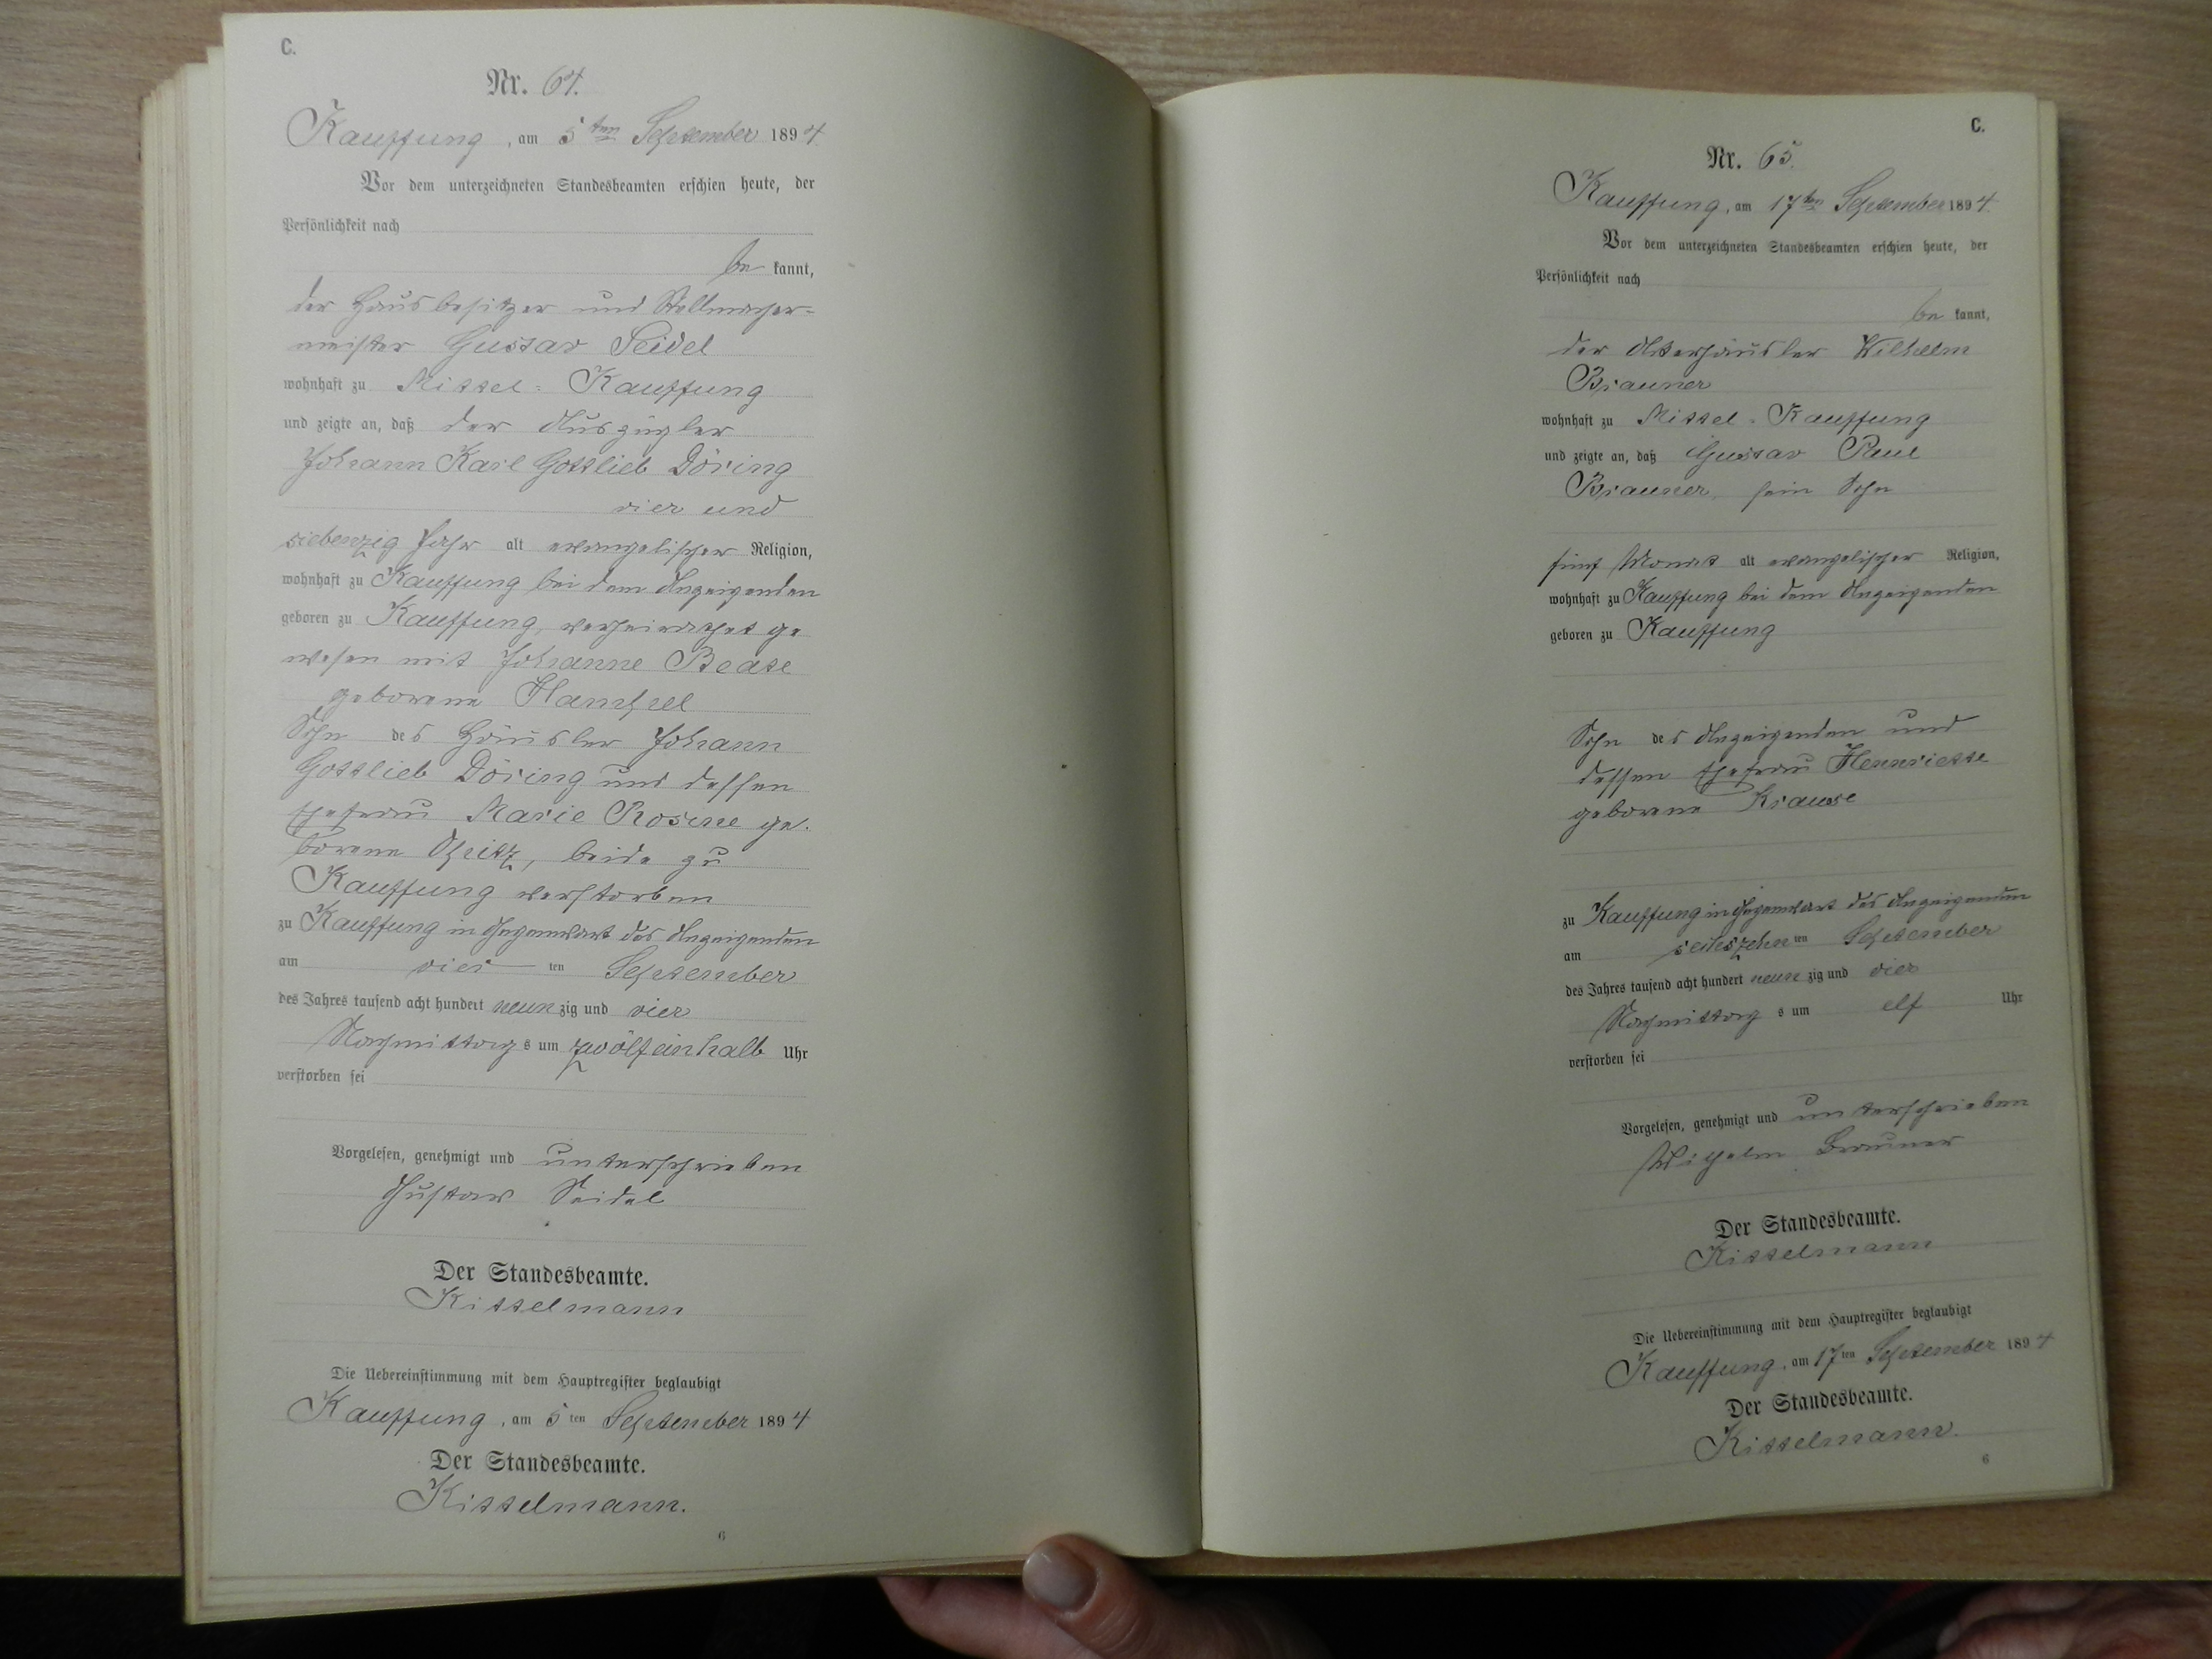 C.
Nr. 64.
Kauffung, am 5ten September 1894.
Vor dem unterzeichneten Standesbeamten erschien heute, der
Persönlichkeit nach
be kannt,
der Hausbesitzer und Stellmacher-
meister Gustav Seidel
wohnhaft zu Mittel-Kauffung
und zeigte an, daß der Auszügler
Johann Karl Gottlieb Döring
vier und
siebenzig Jahr alt evangelischer Religion,
wohnhaft zu Kauffung bei dem Anzeigenden
geboren zu Kauffung, verheirathet ge
wesen mit Johanne Beate
geborene
Sohn des Häusler Johann
Gottlieb Döring und dessen
Ehefrau Marie Rosine ge-
borene Opitz, beide zu
Kauffung verstorben
zu Kauffung in Gegenwart des Anzeigenden
am vier ten September
des Jahres tausend acht hundert neun zig und vier
Nachmittag s um zwölfeinhalb Uhr
verstorben sei
Vorgelesen, genehmigt und unterschrieben
Gustav Seidel
Der Standesbeamte.
Kittelmann
Die Uebereinstimmung mit dem Hauptregister beglaubigt
Kauffung, am 5 ten September 1894
Der Standesbeamte.
Kittelmann.
6
C.
Nr. 65.
Kauffung, am 17ten September 1894.
Vor dem unterzeichneten Standesbeamten erschien heute, der
Persönlichkeit nach
be kannt,
der Ackerhäusler Wilhelm
Brauner
wohnhaft zu Mittel-Kauffung
und zeigte an, daß Gustav Paul
Brauner, sein Sohn
fünf Monat alt evangelischer Religion,
wohnhaft zu Kauffung bei dem Anzeigenden
geboren zu Kauffung
Sohn des Anzeigenden und
dessen Ehefrau Henriette
geborene Krause
zu Kauffung in Gegenwart des Anzeigenden
am sechszehn ten September
des Jahres tausend acht hundert neun zig und vier
Nachmittag s um elf Uhr
verstorben sei
Vorgelesen, genehmigt und unterschrieben
Wilhelm Brauner
Der Standesbeamte.
Kittelmann
Die Uebereinstimmung mit dem Hauptregister beglaubigt
Kauffung, am 17 ten September 1894
Der Standesbeamte.
Kittelmann.
6